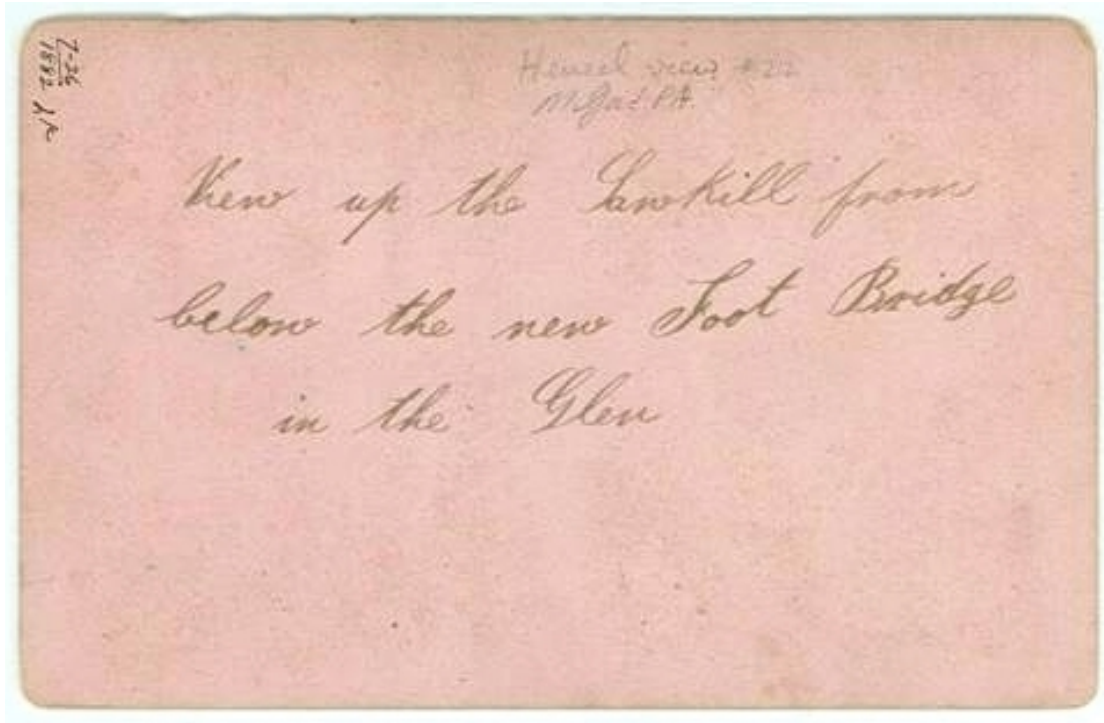 7-26
1882
Hensel view #212
View up the Sawkill from
below the new Foot Bridge
in the Glen